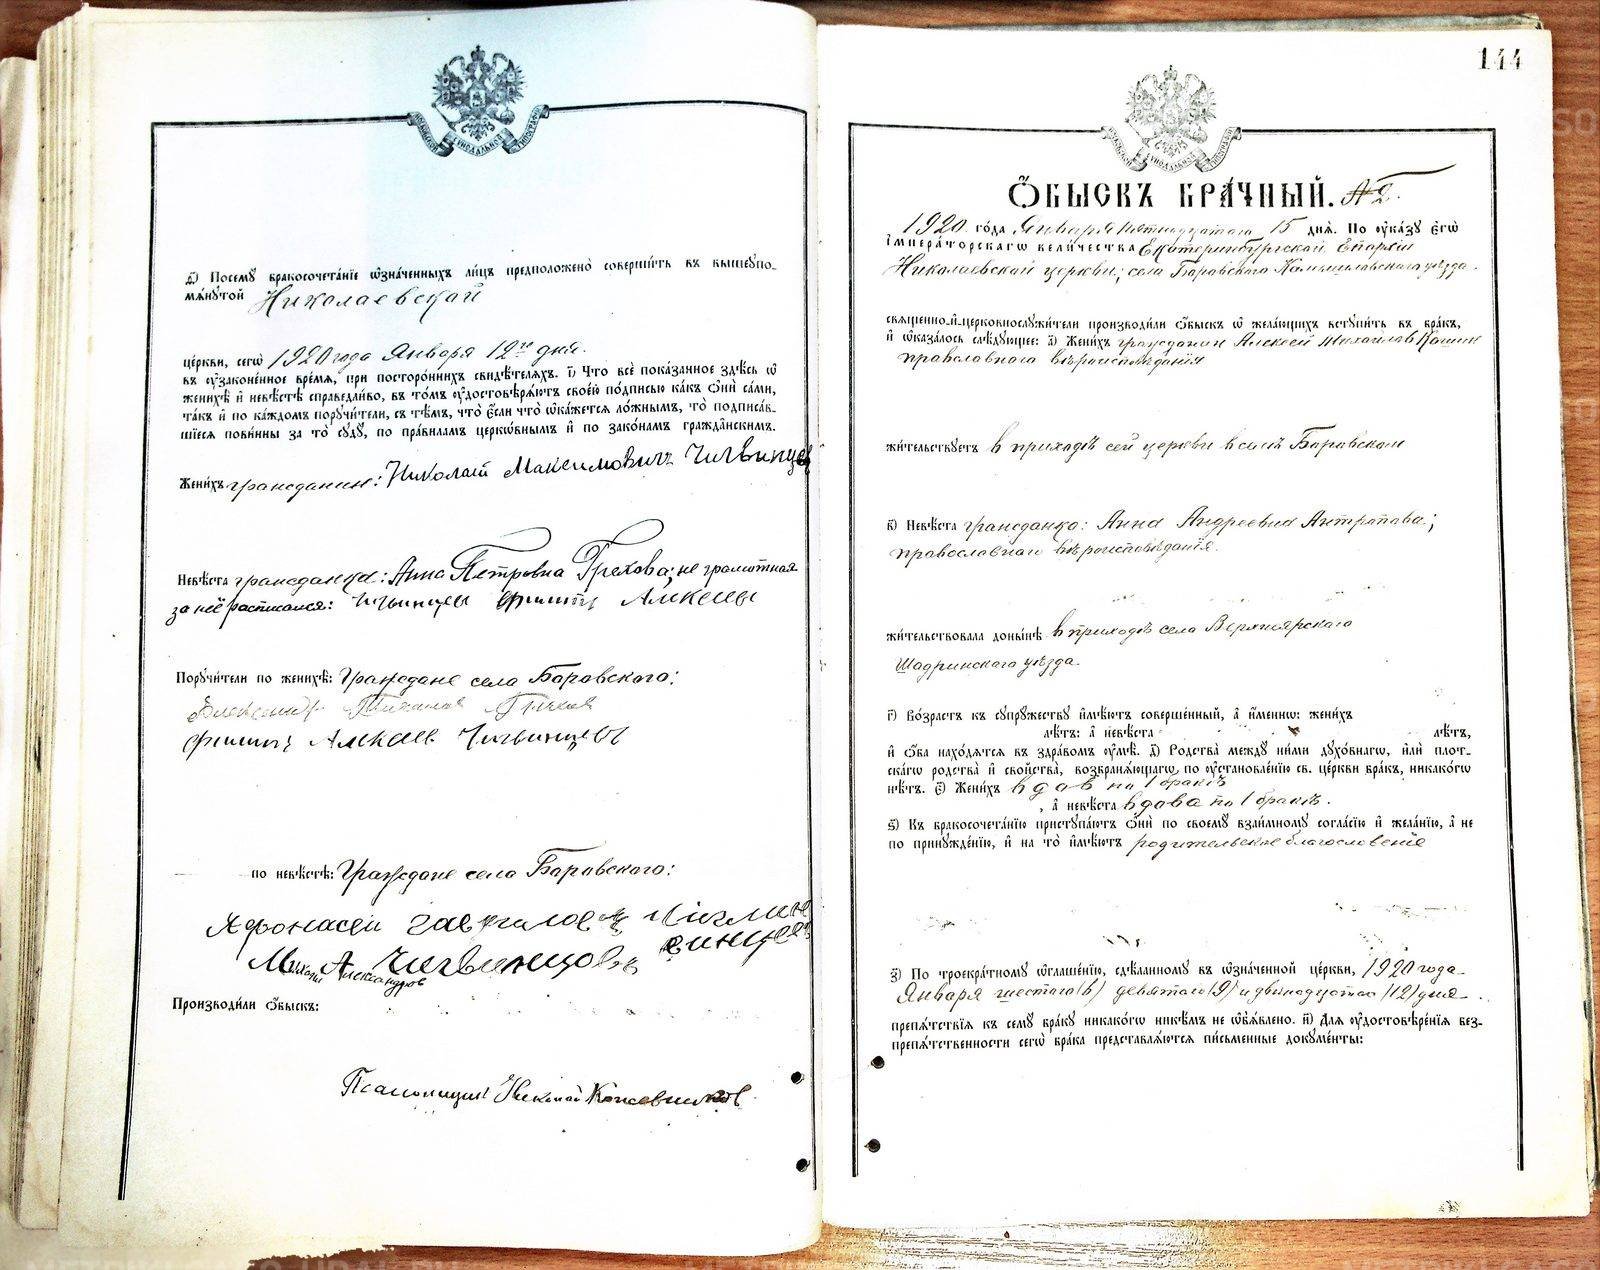 МОСКОВСКОЙ СѴНОДАЛЬНОЙ ТИПОГРАФІИ
ѳ҃) Посемꙋ бракосочета́нїе ѡ҆зна́ченныхъ ли́цъ предположено̀ соверши́ть въ вышеꙋпо-
мѧ́нꙋтой Николаевской
це́ркви, сегѡ̀ 1920 года Января 12го дня.
въ ᲂу҆зако́нённое вре́мѧ, при посторо́ннихъ свидѣ́телѧхъ. і҃) Что̀ всѐ пока́занное здѣ́сь ѡ҆
женихѣ̀ и҆ невѣ́стѣ справедли́во, въ то́мъ ᲂу҆достовѣрѧ́ютъ свое́ю по́дписью ка́къ ѻ҆нѝ са́ми,
та́къ и҆ по ка́ждомъ порꙋчи́тели, съ тѣ́мъ, что̀ є҆́сли что̀ ѡ҆ка́жетсѧ ло́жнымъ, то̀ подписа́в-
шїесѧ пови́нны за то̀ сꙋдꙋ̀, по пра́виламъ церко́внымъ и҆ по зако́намъ гражда́нскимъ.
Жени́хъ гражданин: Николай Максимовичъ Чигвинцев
Невѣ́ста гражданка: Анна Петровна Грехова; не грамотная
за неё расписался: Чигвинцев Филипъ Алексеев
Порꙋчи́тели по женихѣ̀: Граждане села Боровского:
Александр
Филипъ Алексеев Чигвинцевъ
по невѣ́стѣ: Граждане села Боровского:
Афонасей Гаврилов
Михаил Александров Чигвинцовъ
Производи́ли ѻ҆́быскъ:
Псаломщикъ Николай Кожевников
144
МОСКОВСКОЙ СѴНОДАЛЬНОЙ ТИПОГРАФІИ
Ѻ҆́БЫСКЪ БРА́ЧНЫЙ. № 2.
1920 го́да Января пятнадцатого 15 днѧ̀. По ᲂу҆ка́зꙋ є҆гѡ̀
і҆мпера́торскагѡ вели́чества Екатеринбургской Епархіи
Николаевской церкви, села Боровского Камышловского уѣзда.
свѧще́нно-и҆-церковнослꙋжи́тели производи́ли ѻ҆́быскъ ѡ҆ жела́ющихъ встꙋпи́ть въ бра́къ,
и҆ ѡ҆каза́лось слѣ́дꙋющее: а҃) Жени́хъ гражданин Алексей Михайлов Кашин
православного вѣроисповѣданія
жи́тельствꙋетъ в приходѣ сей церкви в селѣ Боровском
в҃) Невѣ́ста гражданка: Анна Андреевна Антропова;
православнаго вѣроисповѣданія.
жи́тельствовала доны́нѣ в приходѣ села Верхнеярского
Шадринского уѣзда.
г҃) Во́зрастъ къ сꙋпрꙋ́жествꙋ и҆мѣ́ютъ соверше́нный, а҆ и҆́меннѡ: жени́хъ
лѣ́тъ: а҆ невѣ́ста лѣ́тъ,
и҆ ѻ҆́ба нахо́дѧтсѧ въ здра́вомъ ᲂу҆мѣ̀. д҃) Родства̀ междꙋ ни́ми дꙋхо́внагѡ, и҆лѝ пло́т-
скагѡ родства̀ и҆ сво́йства, возбранѧ́ющагѡ, по ᲂу҆становле́нїю св. це́ркви бра́къ, никако́гѡ
нѣ́тъ. є҃) Жени́хъ вдов по 1 бракѣ
, а҆ невѣ́ста вдова по 1 бракѣ.
ѕ҃) Къ бракосочета́нїю пристꙋпа́ютъ ѻ҆нѝ по своемꙋ̀ взаи́мномꙋ согла́сїю и҆ жела́нїю, а҆ не
по принꙋжде́нїю, и҆ на то̀ и҆мѣ́ютъ родительское благословеніе
з҃) По троекра́тномꙋ ѡ҆глаше́нїю, сдѣ́ланномꙋ въ ѡ҆зна́ченной це́ркви, 1920 года
Января шестаго (6) девятаго (9) и двѣнадцатаго (12) дня
препѧ́тствїѧ къ семꙋ̀ бра́кꙋ никако́гѡ никѣ́мъ не ѡ҆б̾ѧ́влено. и҃) Длѧ ᲂу҆достовѣре́нїѧ без-
препѧ́тственности сегѡ̀ бра́ка представлѧ́ютсѧ пи́сьменные докꙋме́нты: